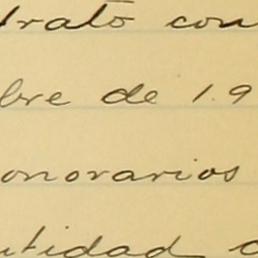 trato con
bre de 19
onorarios
ntidad c